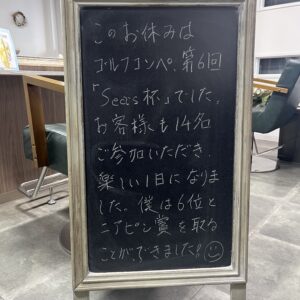 このお休みは
ゴルフコンペ、第6回
「Seas杯」でした。
お客様も14名
ご参加いただき、
楽しい1日になりま
した。僕は6位と
ニアピン賞を取る
ことができました!